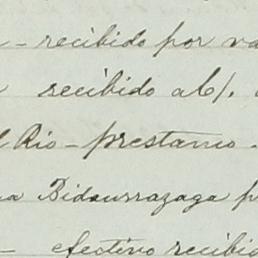 - recibido por va
recibido a b/.
l Rio - prestamo -
a Bidaurrazaga p
- efectivo recibid